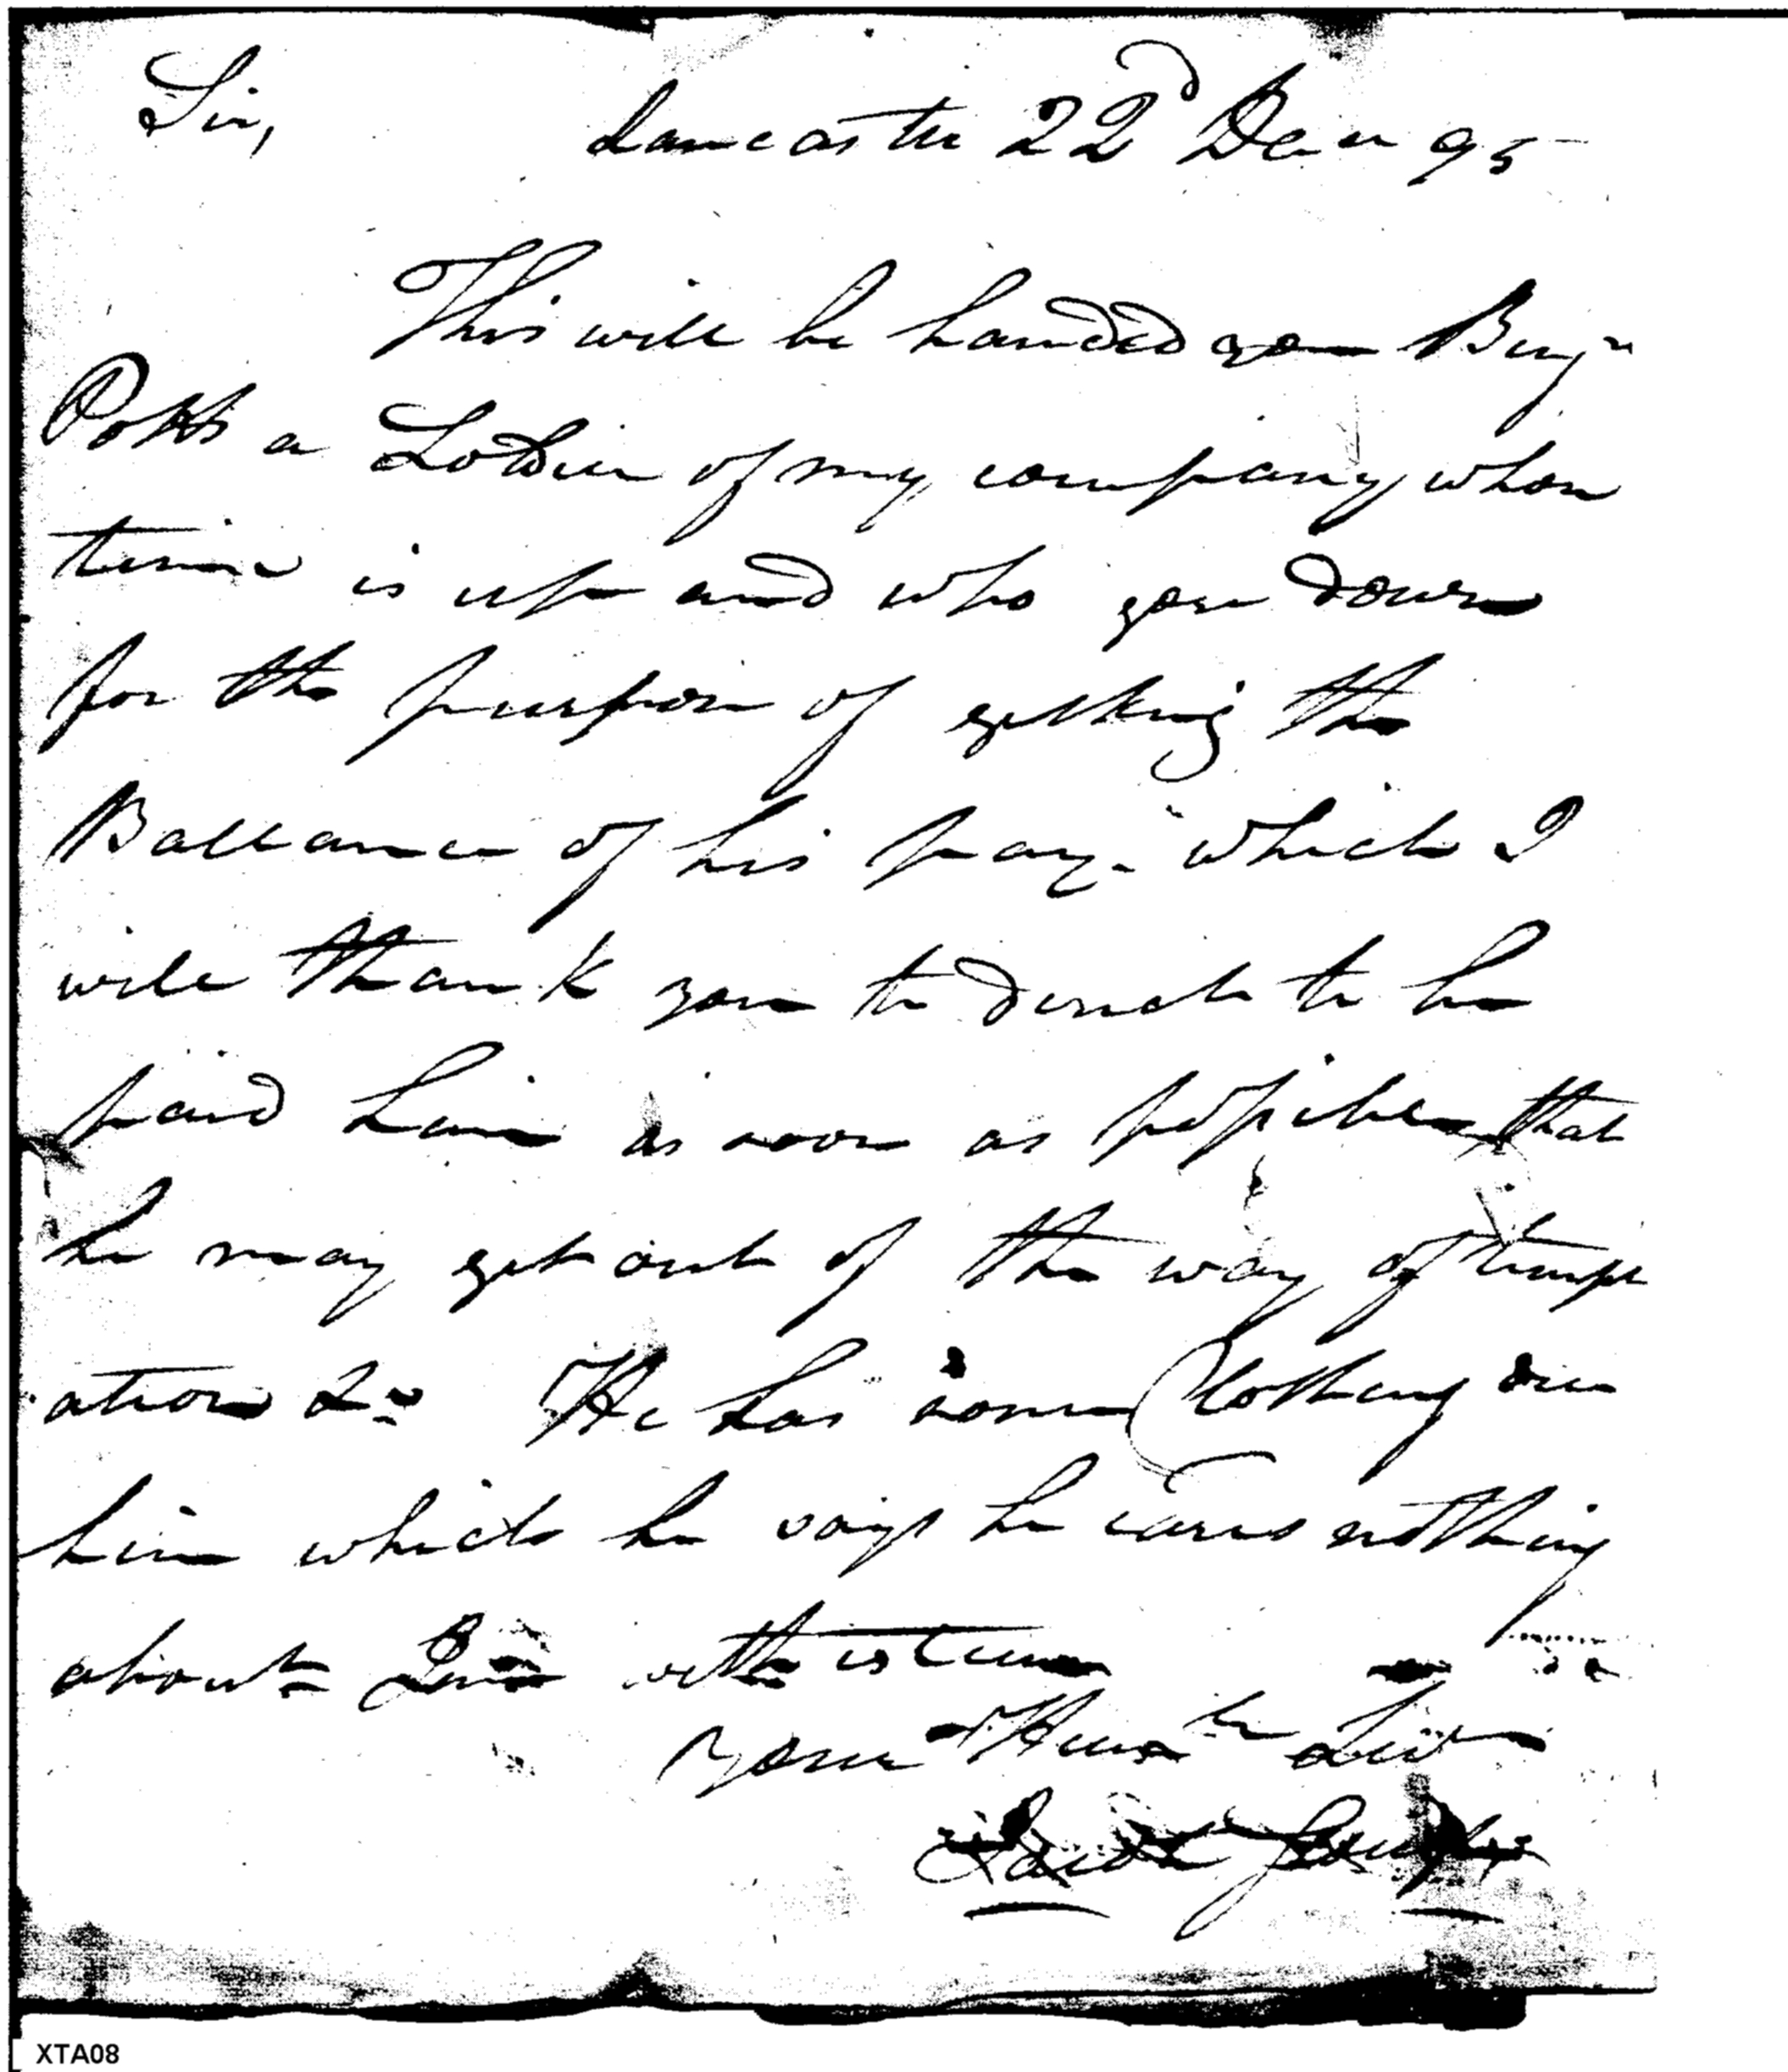 Sir, Lancaster 22d Decr 95
This will be handed you Benjn
Potts a Soldier of my company whose
time is up and who goes down
for the purpose of getting the
Ballance of his pay - which I
will thank you to direct to be
paid him as soon as possible that
he may get out of the way of tempt
ation &c. He has some Clothing due
him which he says he cares nothing
about - I am with esteem
your Humbe Servt
XTA08